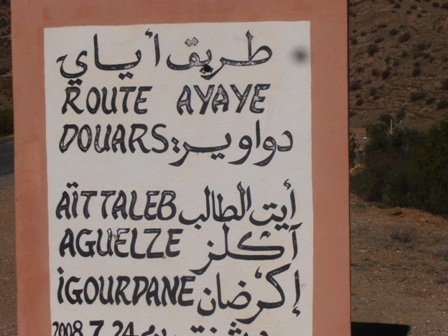 طريق أياي
ROUTE AYAYE
DOUARS: دواوير
AÏT TALEB أيت الطالب
AGUELZE أكلز
iGOURDANE إكرضان
2008.7.24